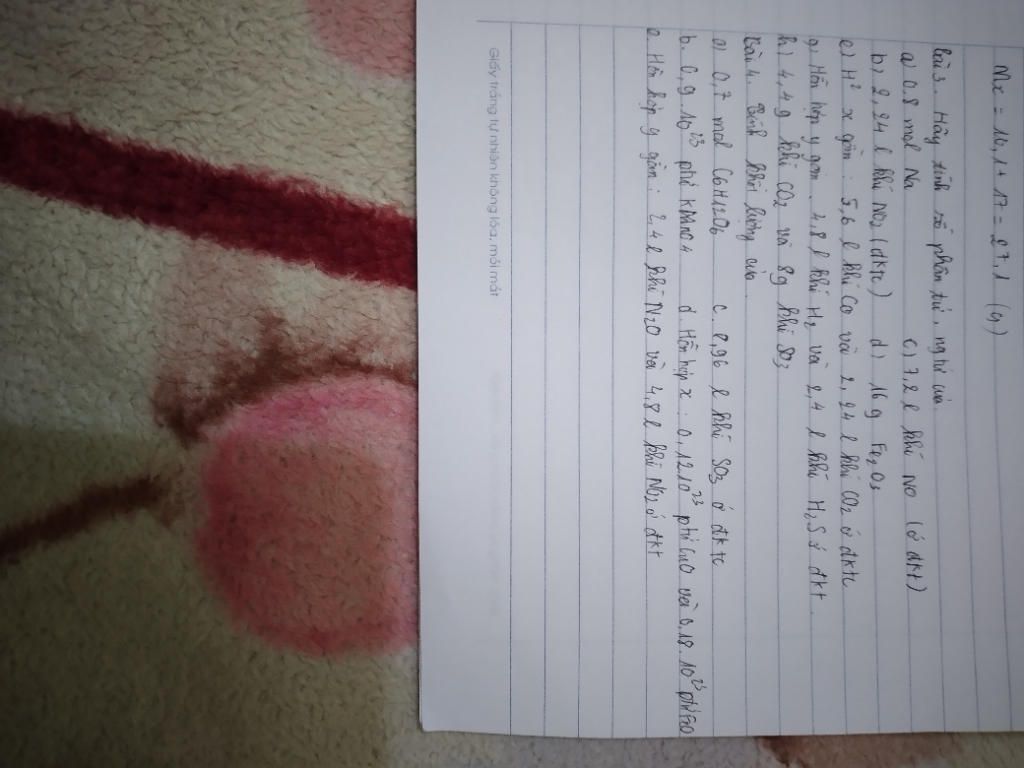 Mx = 10,1 + 17 = 27,1 (g)
Bài 3. Hãy tính số phân tử, ng tử của.
a) 0,8 mol Na c) 7,2 l khí NO (ở đkt)
b) 2,24 l khí NO₂ (đktc) d) 16 g Fe₂O₃
e) H² x gồm : 5,6 l khí CO và 2,24 l khí CO₂ ở đktc
g. Hỗn hợp y gồm . 4,8 l khí H₂ và 2,4 l khí H₂S ở đkt.
h) 4,4 g khí CO₂ và 8g khí SO₃
Bài 4. Tính khối lượng của.
a) 0,7 mol C₆H₁₂O₆ c. 8,96 l khí SO₃ ở đktc
b. 0,9.10²³ ptử KMnO₄ d Hỗn hợp x : 0,12.10²³ ptử CuO và 0,18.10²³ ptử FeO
e. Hỗn hợp y gồm : 2,4 l khí N₂O và 4,8 l khí NO₂ ở đkt
Giấy trắng tự nhiên không lóa, mỏi mắt